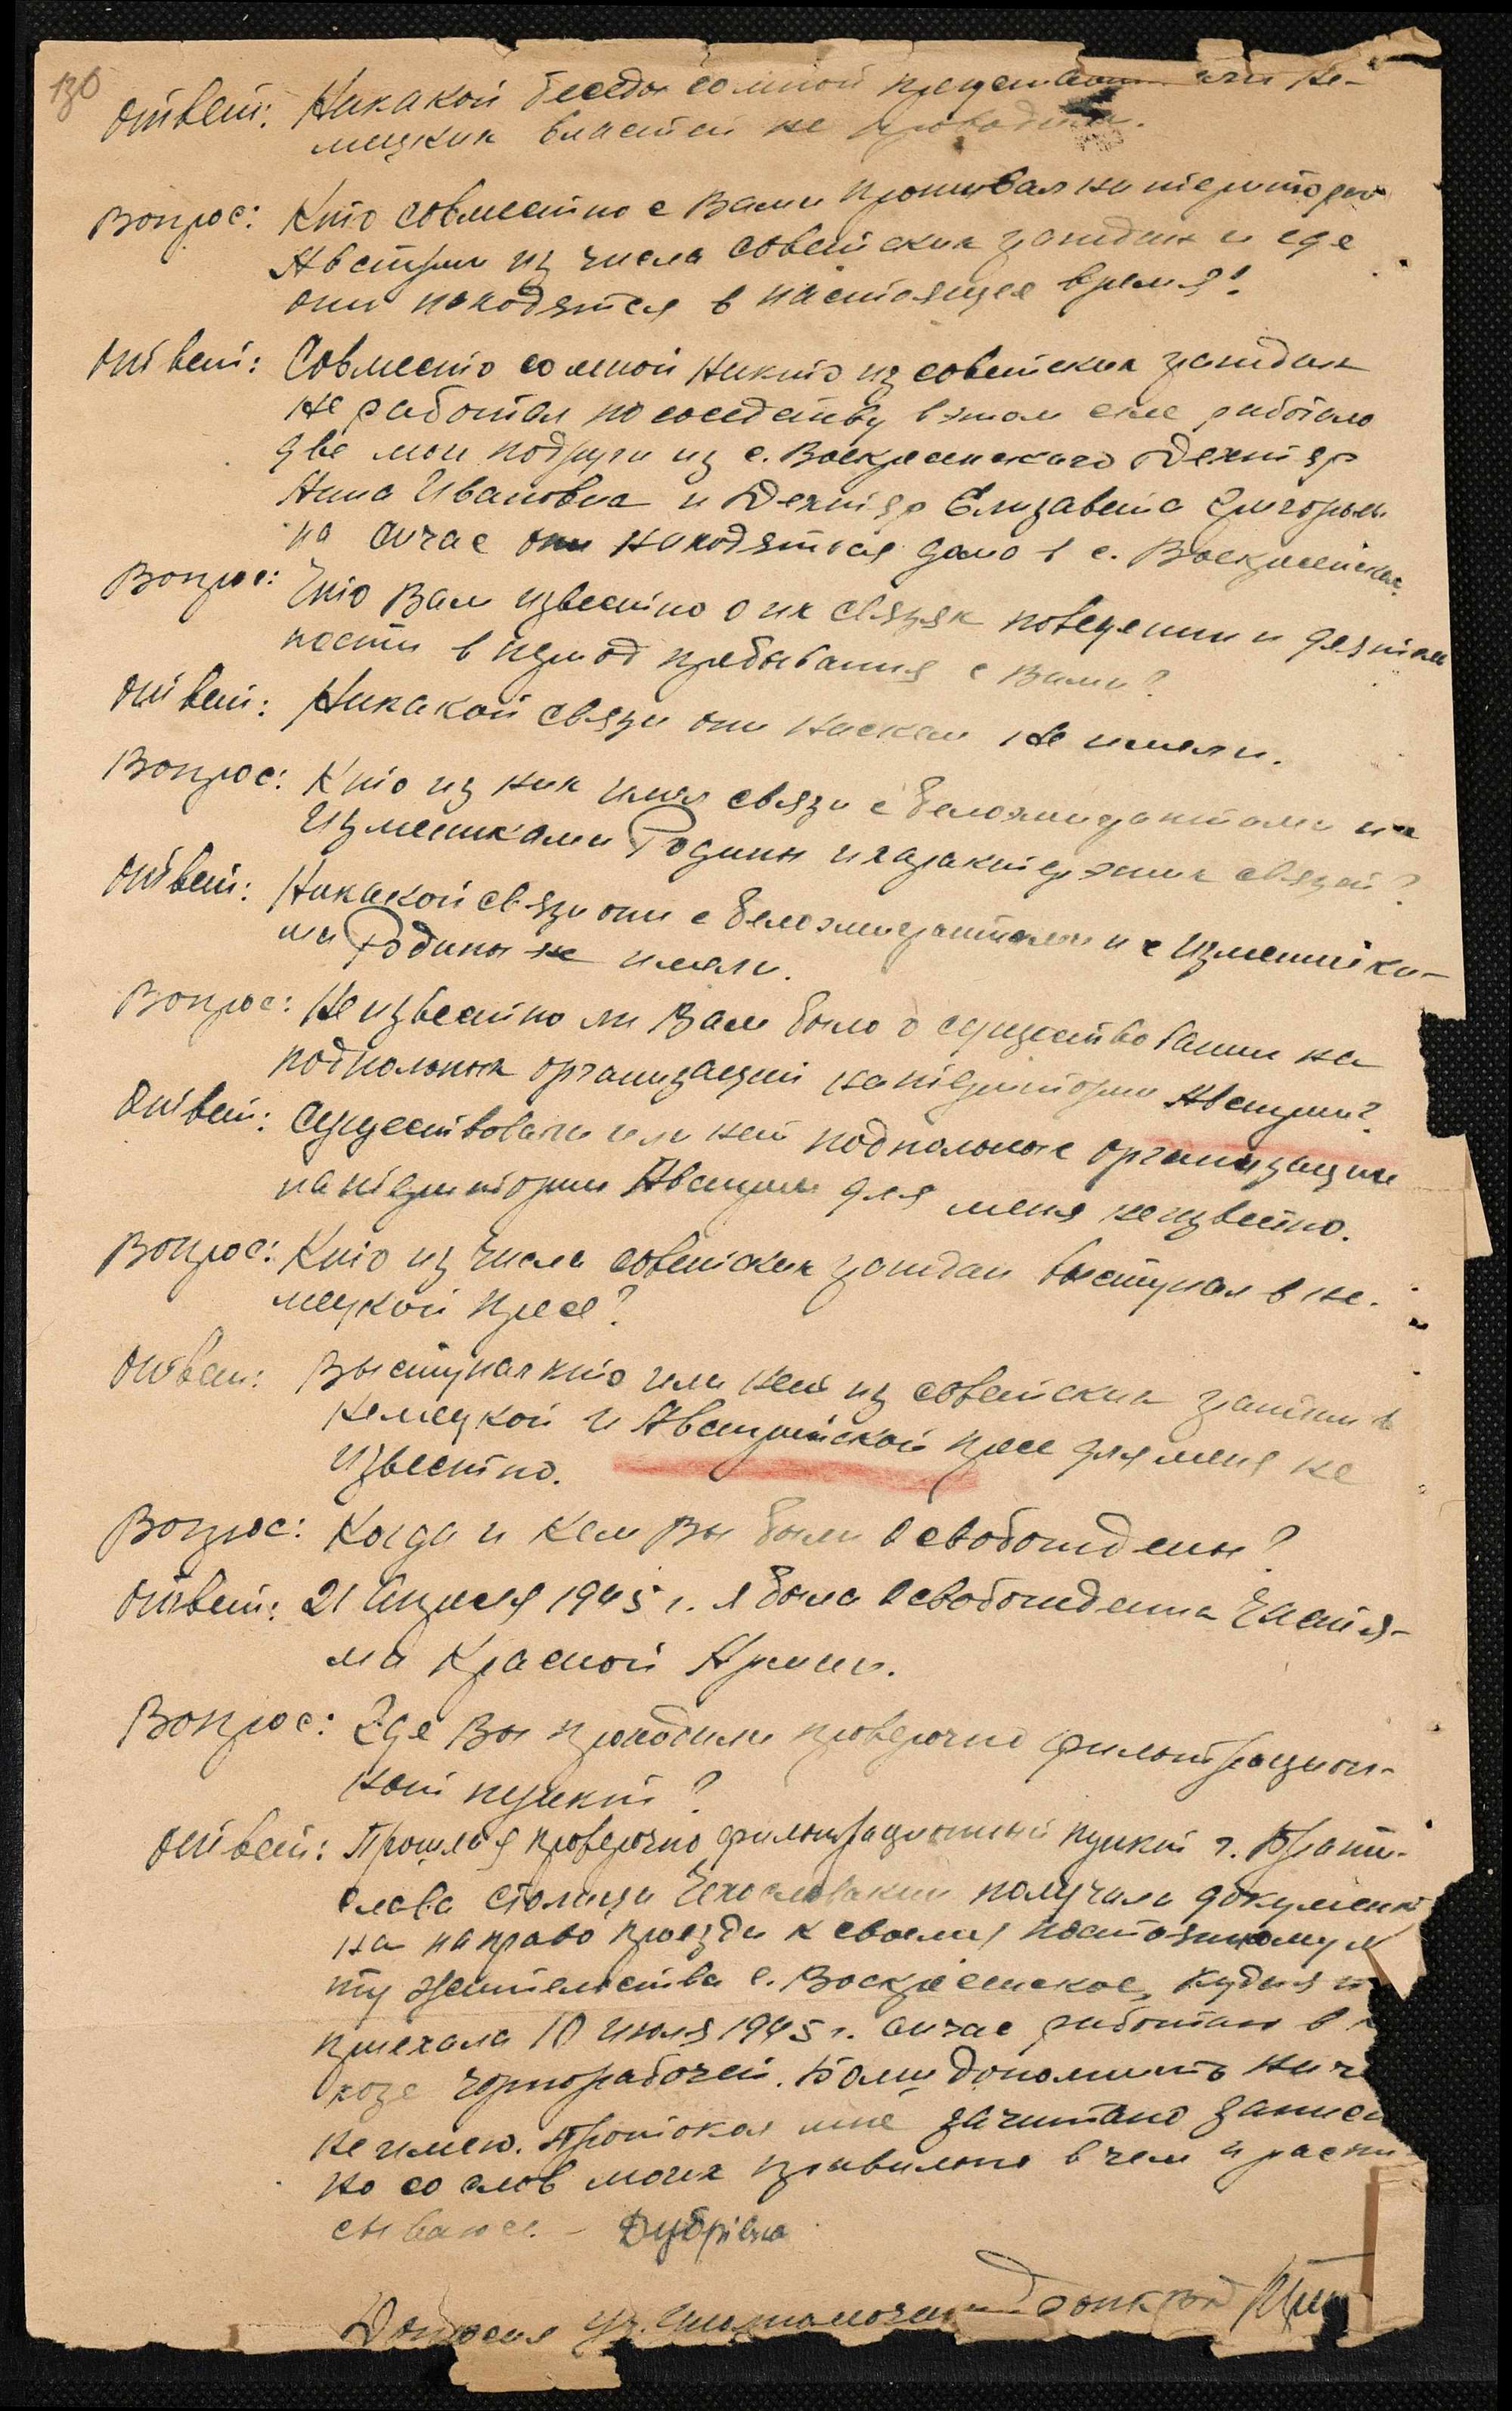 130
Ответ: Никакой беседы со мной представители не-
мецких властей не проводили.
Вопрос: Кто совместно с Вами проживал на територии
Австрии из числа советских граждан и где
они находятся в настоящее время?
Ответ: Совместо со мной никто из советских граждан
не работал по соседству в этом селе работало
две мои подруги из с. Воскресенского Дехтяр
Нина Ивановна и Дехтяр Елизавета Григорьев
на сичас они находяться дома в с. Воскресенском.
Вопрос: Что Вам известно о их связях поведении и деятель
ности в период пребывания с Вами?
Ответ: Никакой связи они нискем не имели.
Вопрос: Кто из них имел связи с белоэмигрантами и
Измениками Родины и характер этих связей?
Ответ: Никакой связи они с белоэмигрантами и с Изменника-
ми Родины не имели.
Вопрос: Неизвестно ли Вам было о существовании на
подпольных организаций на територии Австрии?
Ответ: Существовали или нет подпольные организации
на територии Австрии для меня неизвестно.
Вопрос: Кто из числа советских граждан выступал в не-
мецкой пресе?
Ответ: Выступал кто или нет из советских граждан в
немецкой и Австрийской пресе для меня не
известно.
Вопрос: Когда и кем Вы были освобождены?
Ответ: 21 апреля 1945 г. я была освобожденна частя-
ми Красной Армии.
Вопрос: Где Вы проходили проверочно фильтрацион-
ный пункт?
Ответ: Прошла я проверочно фильтрационный пункт г. Брати-
слава столица Чехословакии получила документ
на на право проезда к своему постоянному м
ту жительства с. Воскресенское, куда я
приехала 10 июля 1945 г. сичас работаю в
хозе чернорабочей. Более дополнить ниче
не имею. Протокол мне зачитано записа
но со слов моих правильно в чем и распи
сываюсь. - Дубрівна
Допросил